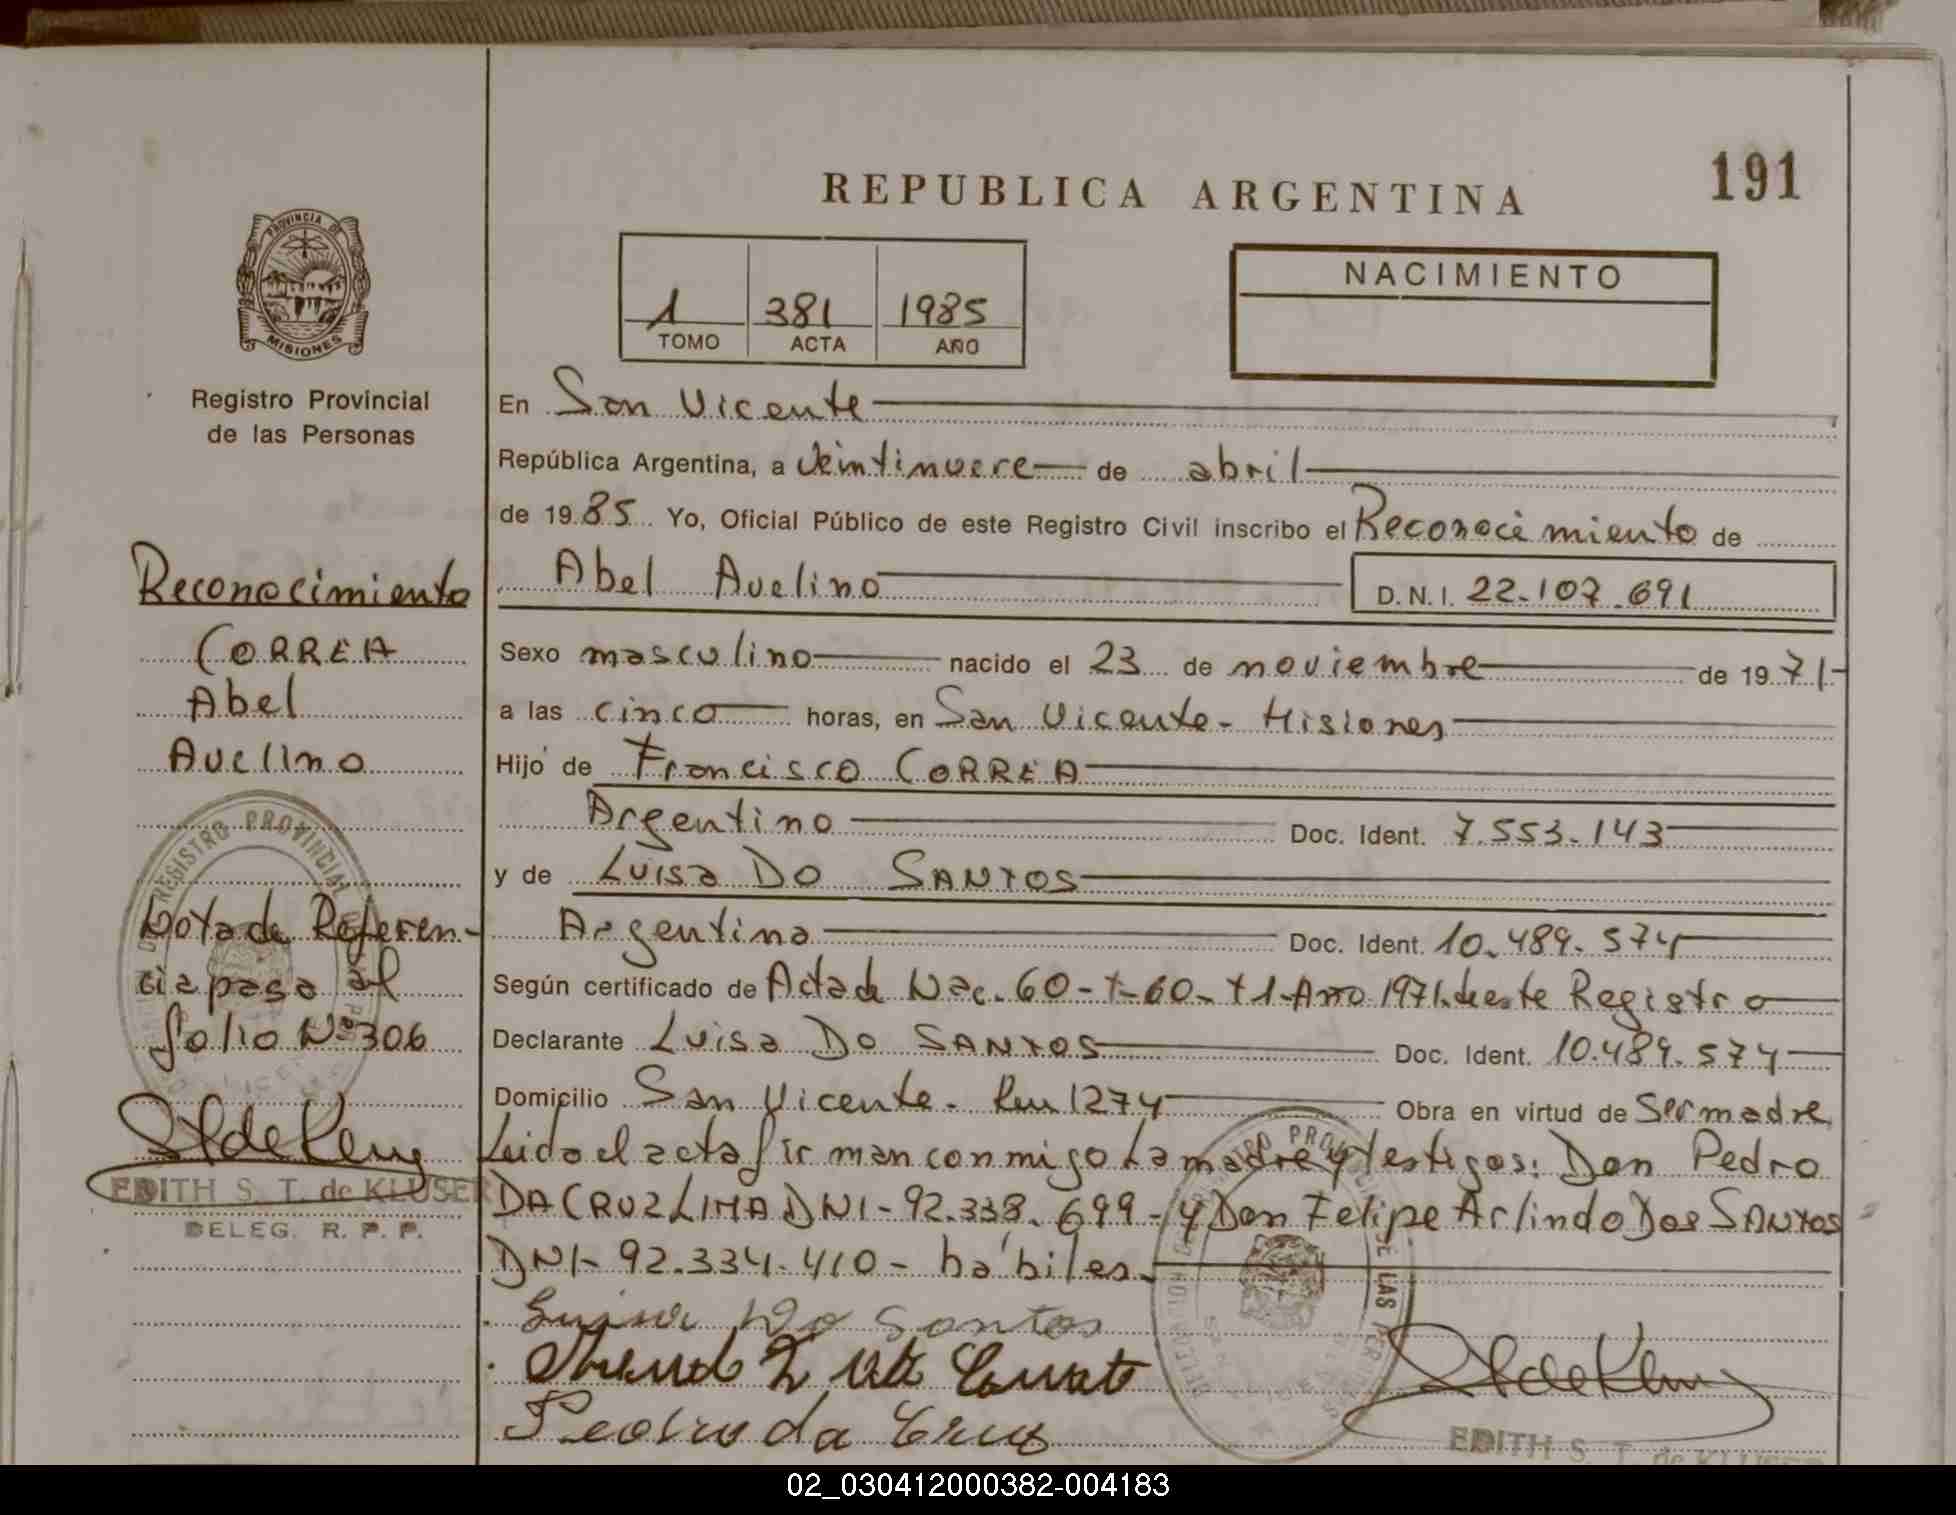 REPUBLICA ARGENTINA
191
PROVINCIA DE
MISIONES
1 381 1985
TOMO ACTA AÑO
NACIMIENTO
Registro Provincial
de las Personas
En San Vicente
República Argentina, a veintinueve de abril
de 19 85 Yo, Oficial Público de este Registro Civil inscribo el Reconocimiento de
Abel Avelino D.N.I. 22.107.691
Sexo masculino nacido el 23 de noviembre de 19 71
a las cinco horas, en San Vicente - Misiones
Hijo de Francisco CORREA
Argentino Doc. Ident. 7.553.143
y de Luisa DO SANTOS
Argentina Doc. Ident. 10.489.574
Según certificado de Acta de Nac. 60-t-60-t1-Año 1971 de este Registro
Declarante Luisa Do SANTOS Doc. Ident. 10.489.574
Domicilio San Vicente - 1274 Obra en virtud de Ser madre
Leido el acta firman conmigo La madre y testigos: Don Pedro
DA CRUZ LIMA DNI-92.338.699-y Don Felipe Arlindo Dos SANTOS
DNI-92.334.410- hábiles.
Luisa Do Santos
Pedro da Cruz
EDITH S. T. de KLUSER
Reconocimiento
CORREA
Abel
Avelino
REGISTRO PROVINCIAL
Nota de Referen-
cia pasa al
folio Nº 306
EDITH S. T. de KLUSER
DELEG. R. P. P.
02_030412000382-004183